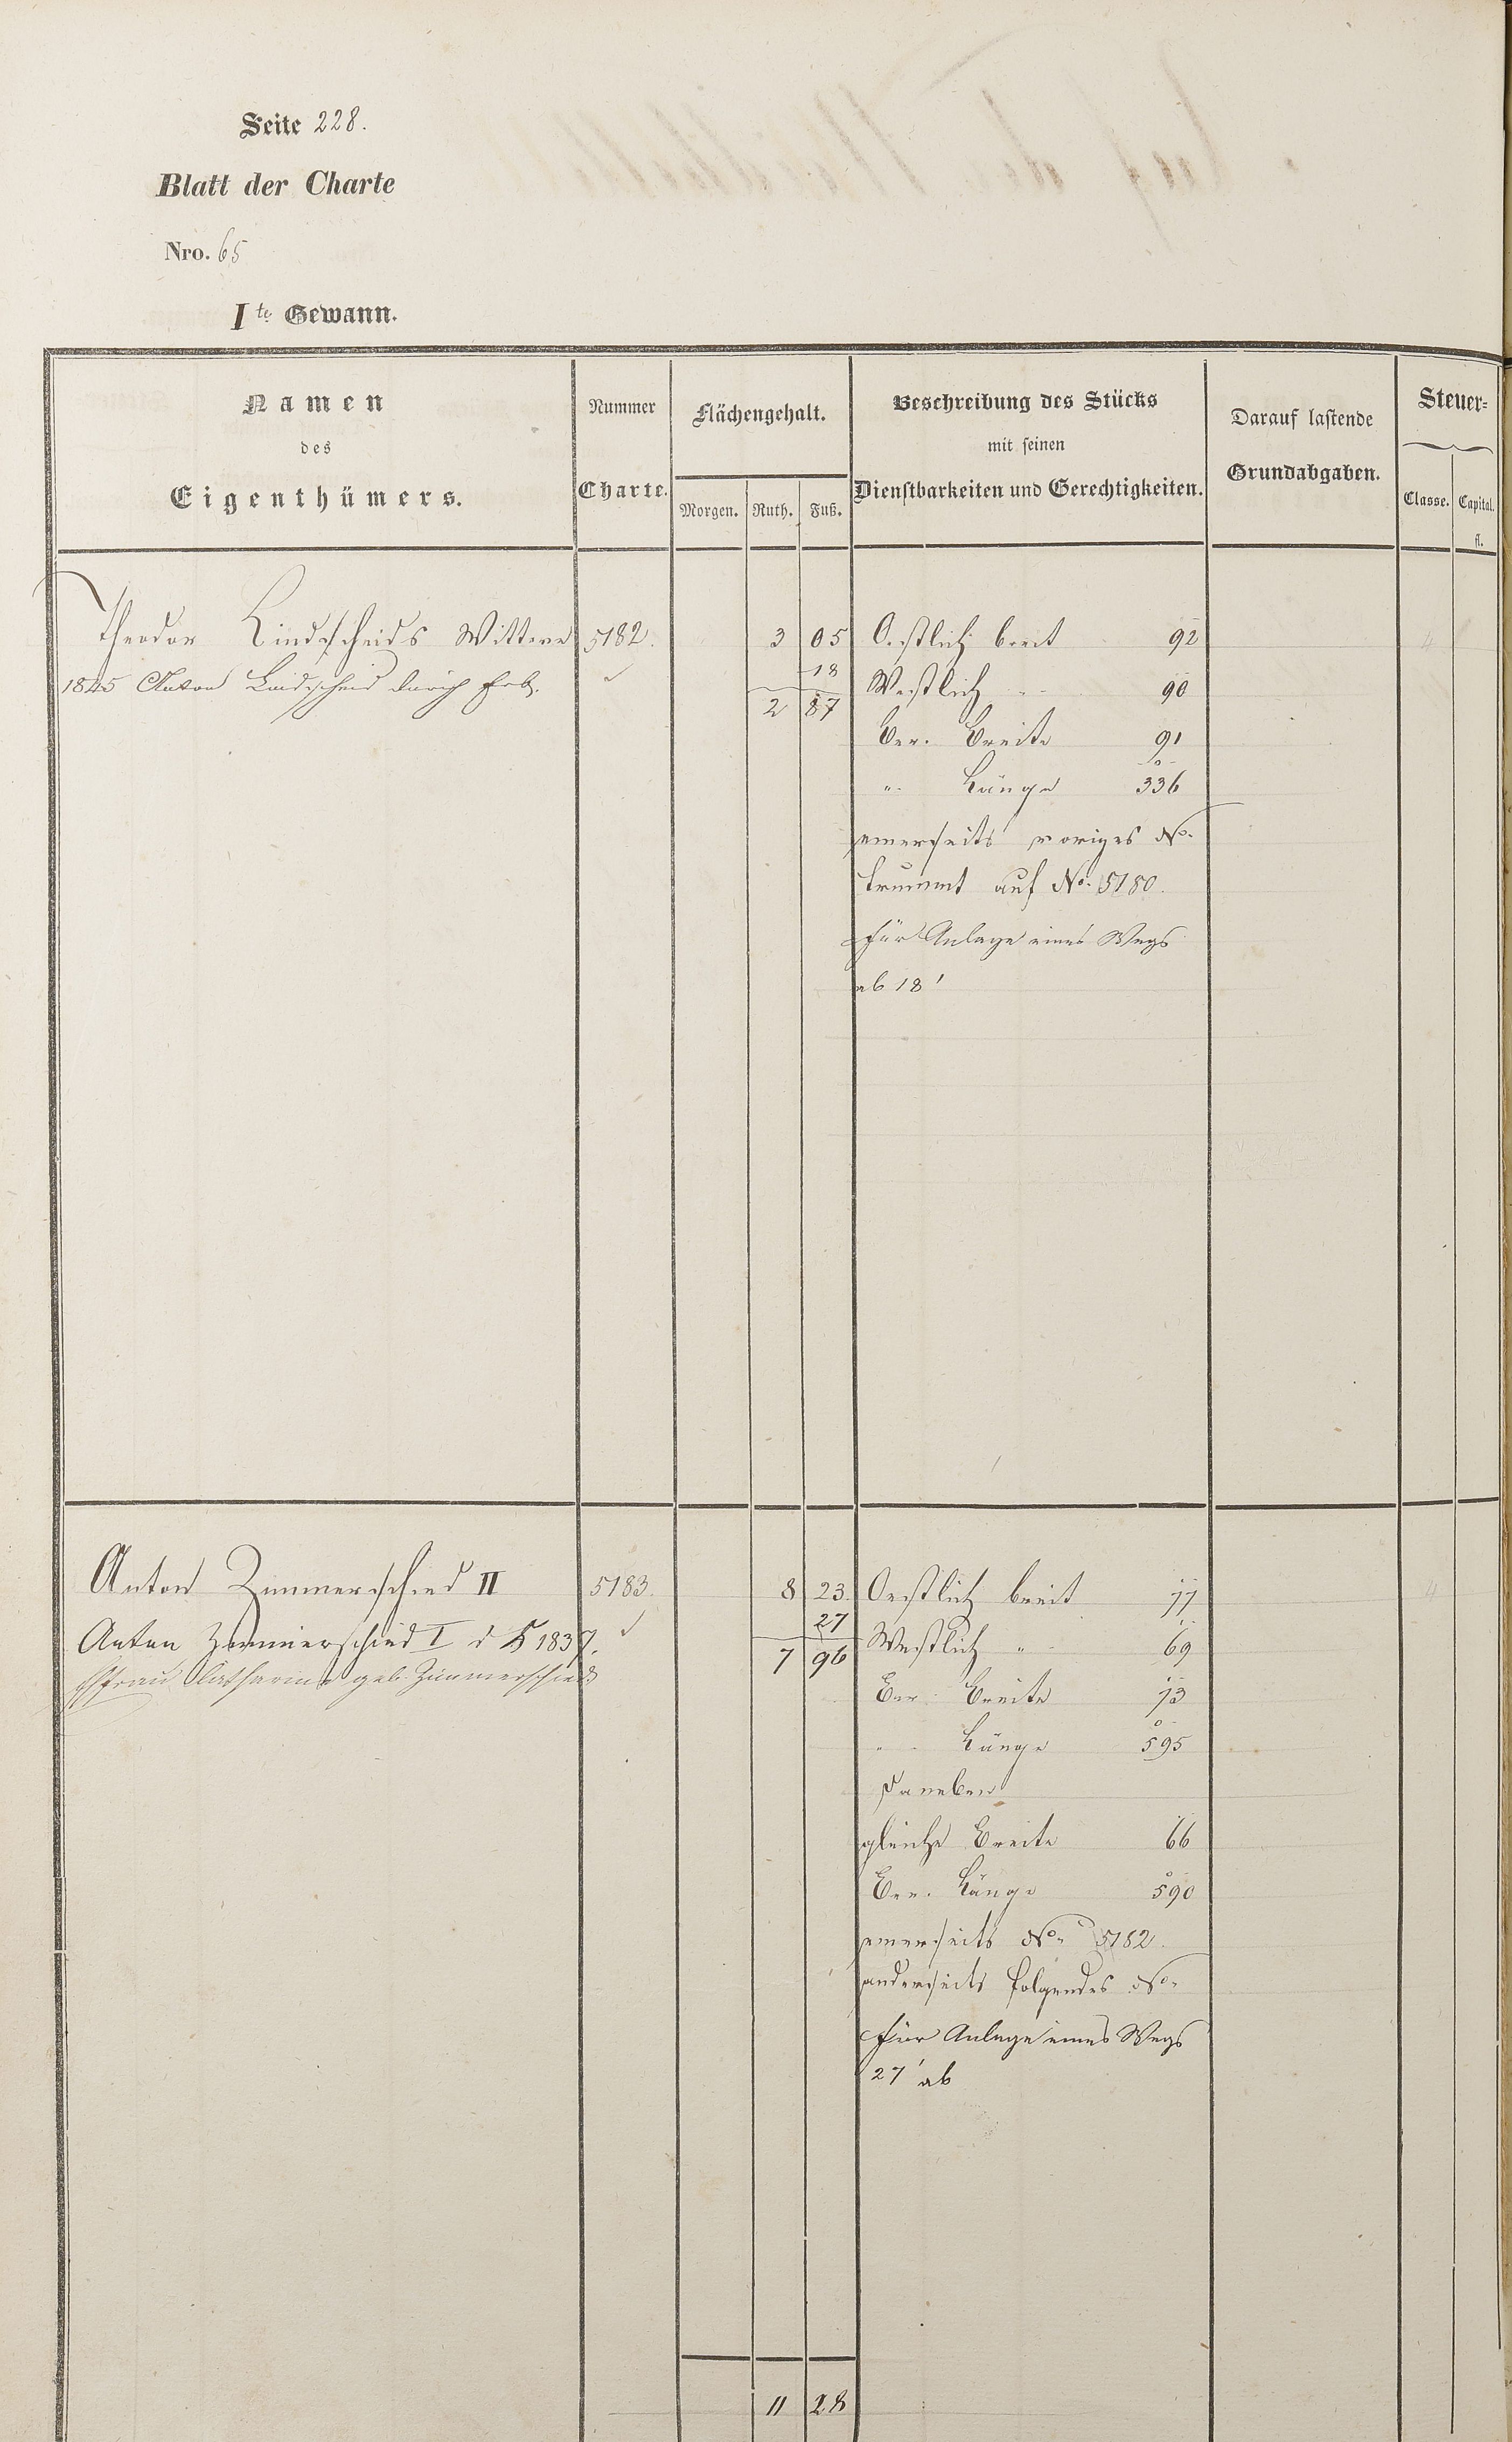 Seite 228.
Blatt der Charte
Nro. 65
Ite Gewann.
Namen
des
Eigenthümers.
Nummer
Charte.
Flächengehalt.
Morgen. Ruth. Fuß.
Beschreibung des Stücks
mit seinen
Dienstbarkeiten und Gerechtigkeiten.
Darauf lastende
Grundabgaben.
Steuer=
Classe. Capital.
fl.
Theodor Lindscheids Wittwe 5182. 3 05 Oestlich breit 92 4
1845 Anton Lindscheid durch Erb. 18
2 87 Westlich " 90
Ver. Breite 91
" Länge 336
einerseits voriges No.
trummt auf No. 5180.
für Anlage eines Wegs
ab 18'
Anton Zimmerschied II 5183. 8 23. Oestlich breit 77 4
27
Anton Zimmerschied I d K 1837. 7 96 Westlich " 69
Ehfrau Catharina geb. Zimmerschied
Ver. Breite 73
" Länge 595
Daneben
gleiche Breite 66
Ver. Länge 590
einerseits No. 5182.
anderseits folgendes No.
für Anlage eines Wegs
27' ab
11 28